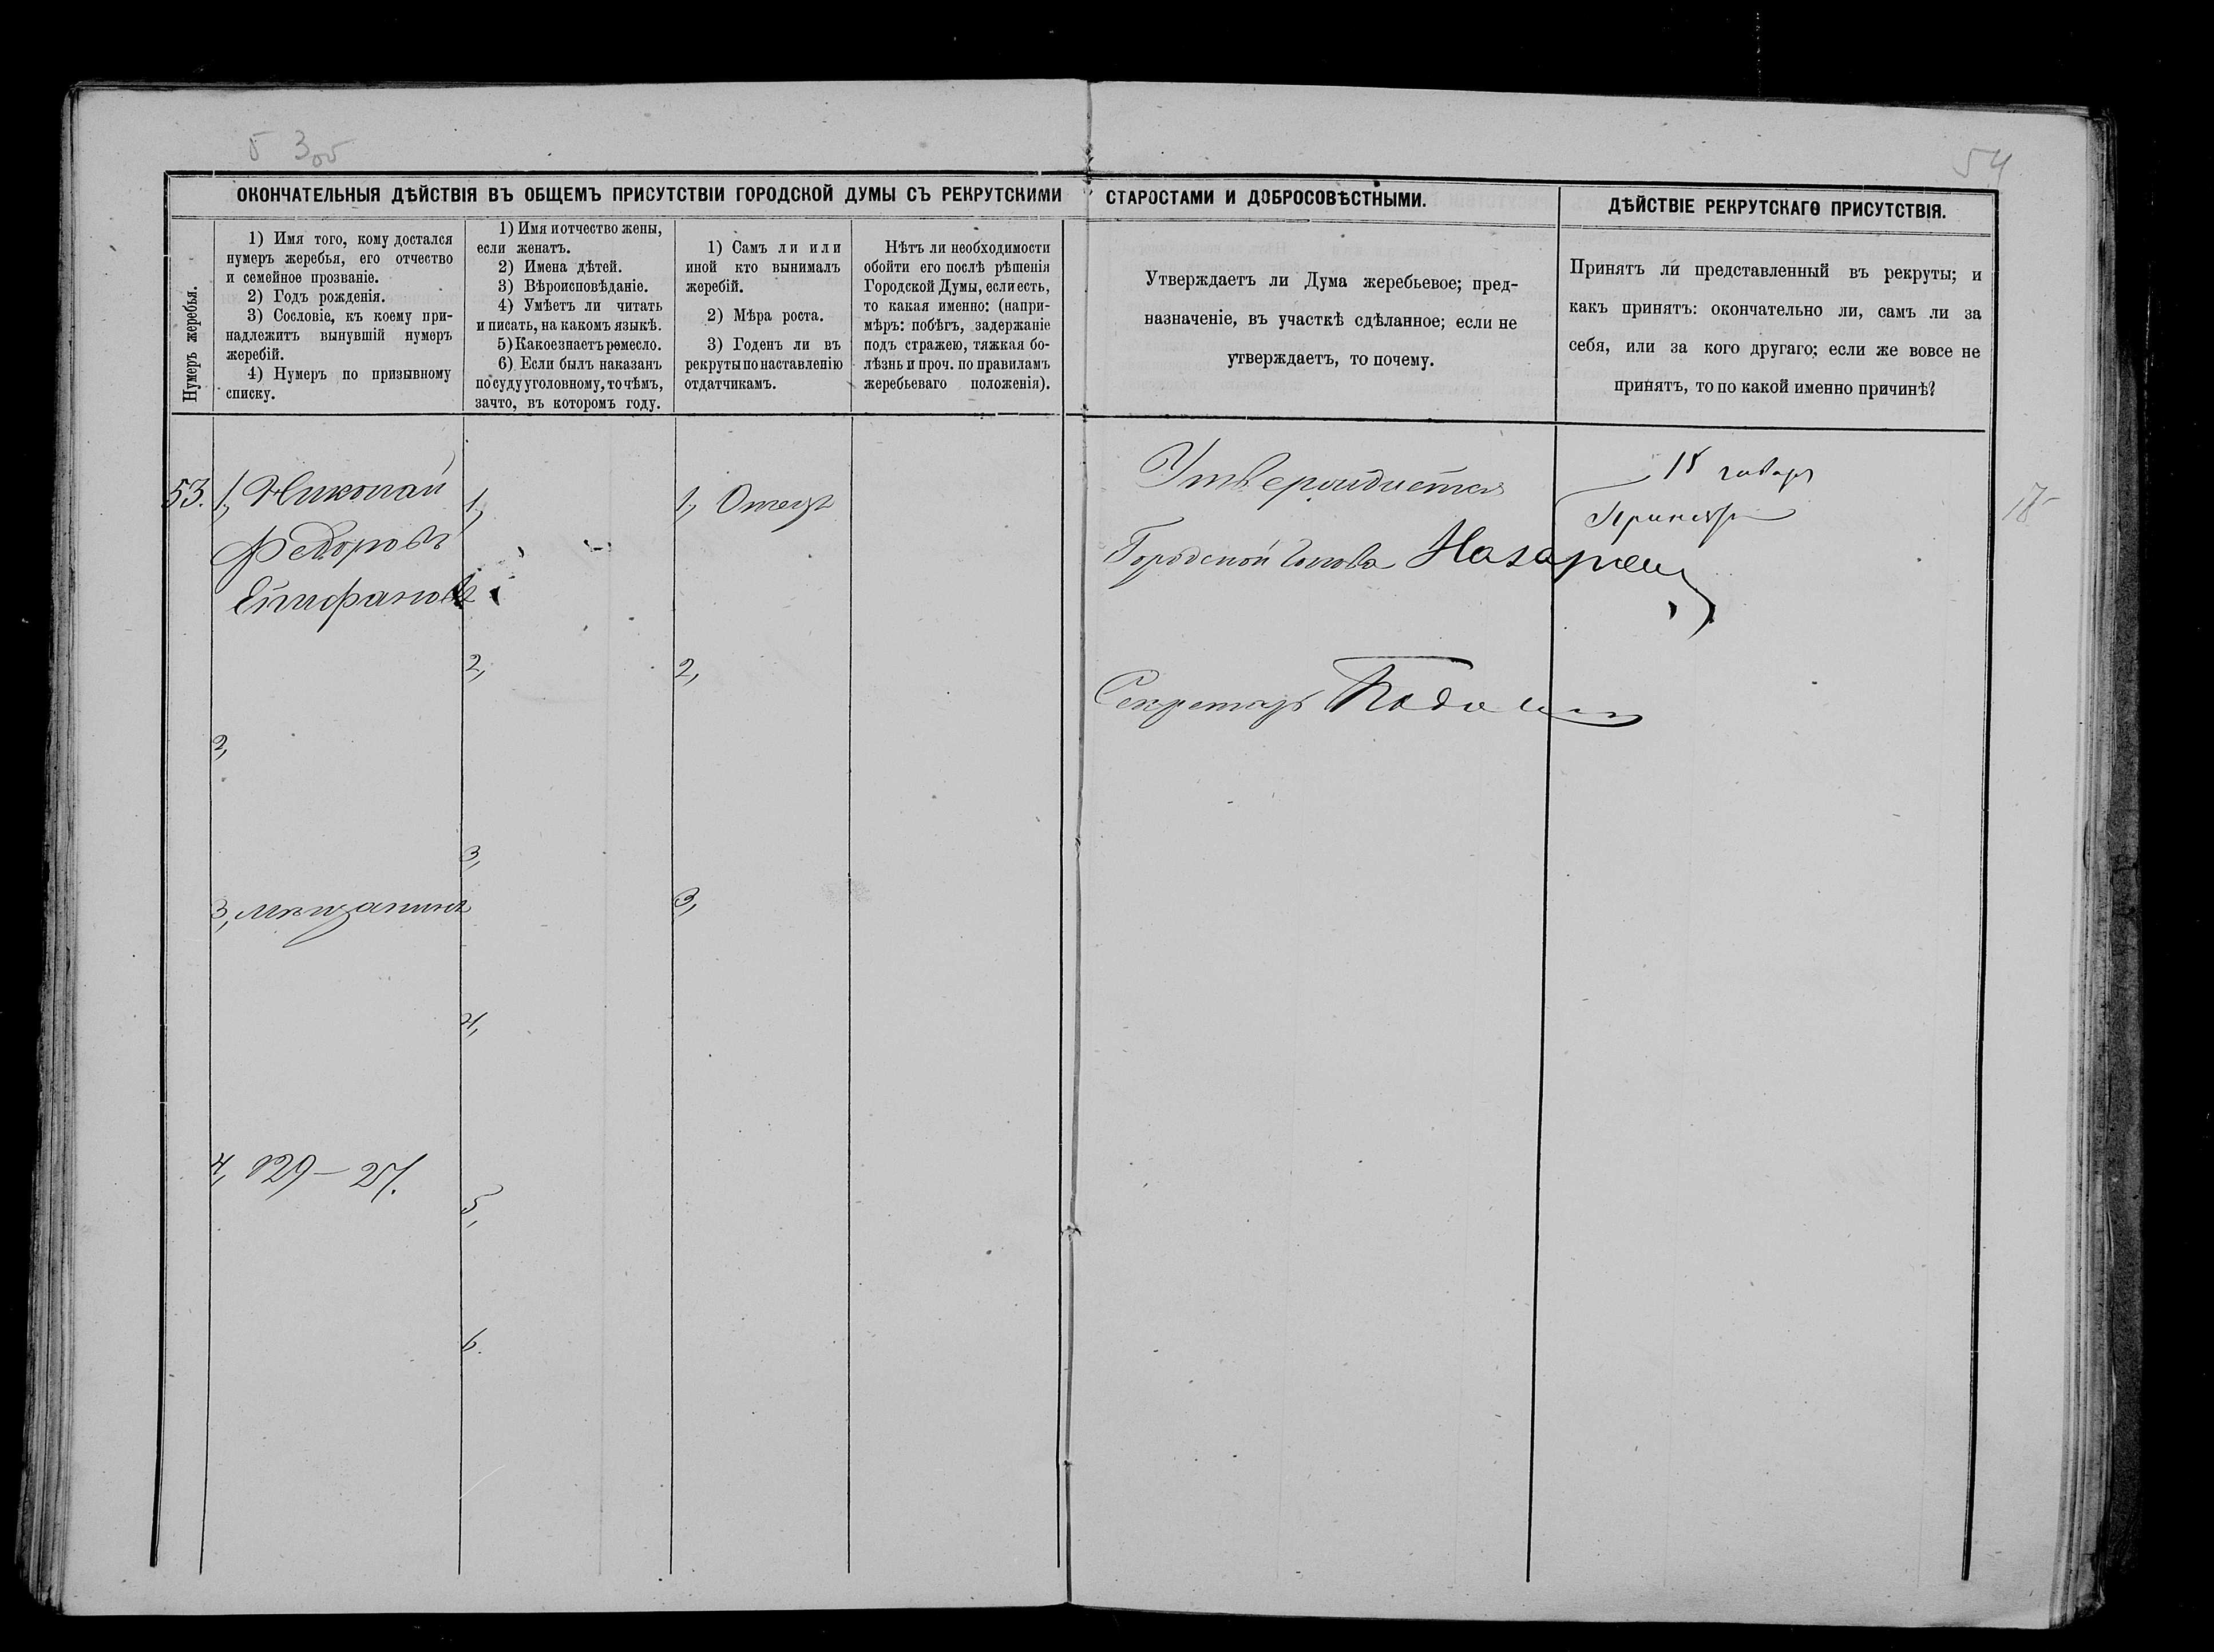 54
ОКОНЧАТЕЛЬНЫЯ ДѢЙСТВІЯ ВЪ ОБЩЕМЪ ПРИСУТСТВІИ ГОРОДСКОЙ ДУМЫ СЪ РЕКРУТСКИМИ СТАРОСТАМИ И ДОБРОСОВѢСТНЫМИ.
ДѢЙСТВІЕ РЕКРУТСКАГО ПРИСУТСТВІЯ.
Нумеръ жеребья.
1) Имя того, кому достался
нумеръ жеребья, его отчество
и семейное прозваніе.
2) Годъ рожденія.
3) Сословіе, къ коему при-
надлежитъ вынувшій нумеръ
жеребій.
4) Нумеръ по призывному
списку.
1) Имя и отчество жены,
если женатъ.
2) Имена дѣтей.
3) Вѣроисповѣданіе.
4) Умѣетъ ли читать
и писать, на какомъ языкѣ.
5) Какое знаетъ ремесло.
6) Если былъ наказанъ
по суду уголовному, то чѣмъ,
за что, въ которомъ году.
1) Самъ ли или
иной кто вынималъ
жеребій.
2) Мѣра роста.
3) Годенъ ли въ
рекруты по наставленію
отдатчикамъ.
Нѣтъ ли необходимости
обойти его послѣ рѣшенія
Городской Думы, если есть,
то какая именно: (напри-
мѣръ: побѣгъ, задержаніе
подъ стражею, тяжкая бо-
лѣзнь и проч. по правиламъ
жеребьеваго положенія).
Утверждаетъ ли Дума жеребьевое; пред-
назначеніе, въ участкѣ сдѣланное; если не
утверждаетъ, то почему.
Принятъ ли представленный въ рекруты; и
какъ принятъ: окончательно ли, самъ ли за
себя, или за кого другаго; если же вовсе не
принятъ, то по какой именно причинѣ?
53.
1, Николай
Федоровъ
Епифановъ
2,
3, мѣщанинъ
4, 129 —
1,
2,
3,
4,
5,
6.
1, Отецъ
2,
3,
Утверждается
Городской Голова
Секретарь
18 января
Принятъ